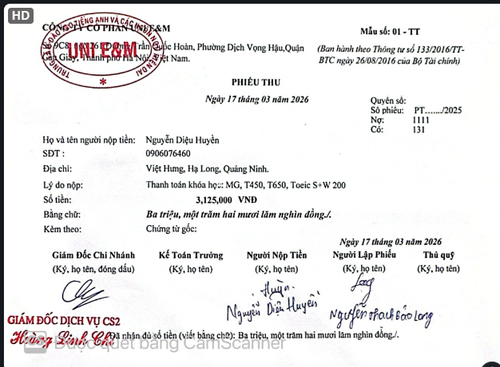 HD
CÔNG TY CỔ PHẦN UNI E&M
Mẫu số: 01 - TT
Trần Quốc Hoàn, Phường Dịch Vọng Hậu, Quận
Cầu Giấy, Thành phố Hà Nội, Việt Nam.
(Ban hành theo Thông tư số 133/2016/TT-
BTC ngày 26/08/2016 của Bộ Tài chính)
UNI E&M
PHIẾU THU
Ngày 17 tháng 03 năm 2026
Quyển số:
Số phiếu: PT......./2025
Nợ: 1111
Có: 131
Họ và tên người nộp tiền: Nguyễn Diệu Huyền
SĐT : 0906076460
Địa chỉ: Việt Hưng, Hạ Long, Quảng Ninh.
Lý do nộp: Thanh toán khóa học: MG, T450, T650, Toeic S+W 200
Số tiền: 3,125,000 VNĐ
Bằng chữ: Ba triệu, một trăm hai mươi lăm nghìn đồng./.
Kèm theo: Chứng từ gốc:
Ngày 17 tháng 03 năm 2026
Giám Đốc Chi Nhánh Kế Toán Trưởng Người Nộp Tiền Người Lập Phiếu Thủ quỹ
(Ký, họ tên, đóng dấu) (Ký, họ tên) (Ký, họ tên) (Ký, họ tên) (Ký, họ tên)
Huyền
Nguyễn Diệu Huyền
Long
Bảo Long
GIÁM ĐỐC DỊCH VỤ CS2
Hoàng Linh Chi
nhận đủ số tiền (viết bằng chữ): Ba triệu, một trăm hai mươi lăm nghìn đồng./.
Được quét bằng CamScanner